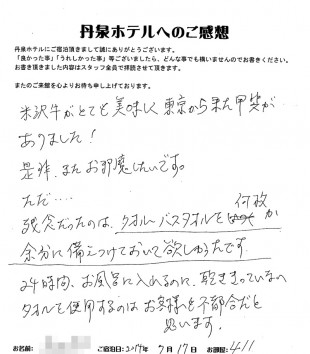 丹泉ホテルへのご感想
丹泉ホテルにご宿泊頂きまして誠にありがとうございます。
「良かった事」「うれしかった事」等ございましたら、どんな事でも構いませんのでお書きください。
お書き頂きました内容はスタッフ全員で拝読させて頂きます。
またのご来館を心よりお待ち申し上げております。
米沢牛がとても美味しく東京から来た甲斐が
ありました!
是非、またお邪魔したいです。
ただ…
残念だったのは、タオル・バスタオルを何故か
余分に備えつけておいて欲しかったです。
24時間、お風呂に入れるのに、乾ききっていない
タオルを使用するのはお客様も不都合だと
思います。
お名前: ご宿泊日:2017年 9月17日 お部屋:411